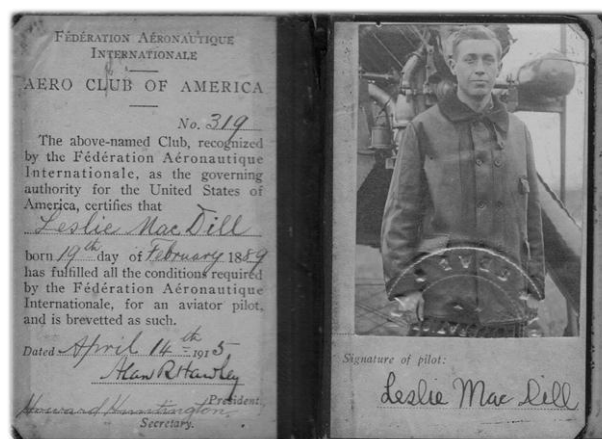 FÉDÉRATION AÉRONAUTIQUE
INTERNATIONALE
AERO CLUB OF AMERICA
No. 319
The above-named Club, recognized
by the Fédération Aéronautique
Internationale, as the governing
authority for the United States of
America, certifies that
Leslie MacDill
born 19th day of February 1889
has fulfilled all the conditions required
by the Fédération Aéronautique
Internationale, for an aviator pilot,
and is brevetted as such.
Dated April 14th 1915
Alan R Hawley
President.
Howard Huntington
Secretary.
Signature of pilot:
Leslie Mac Dill